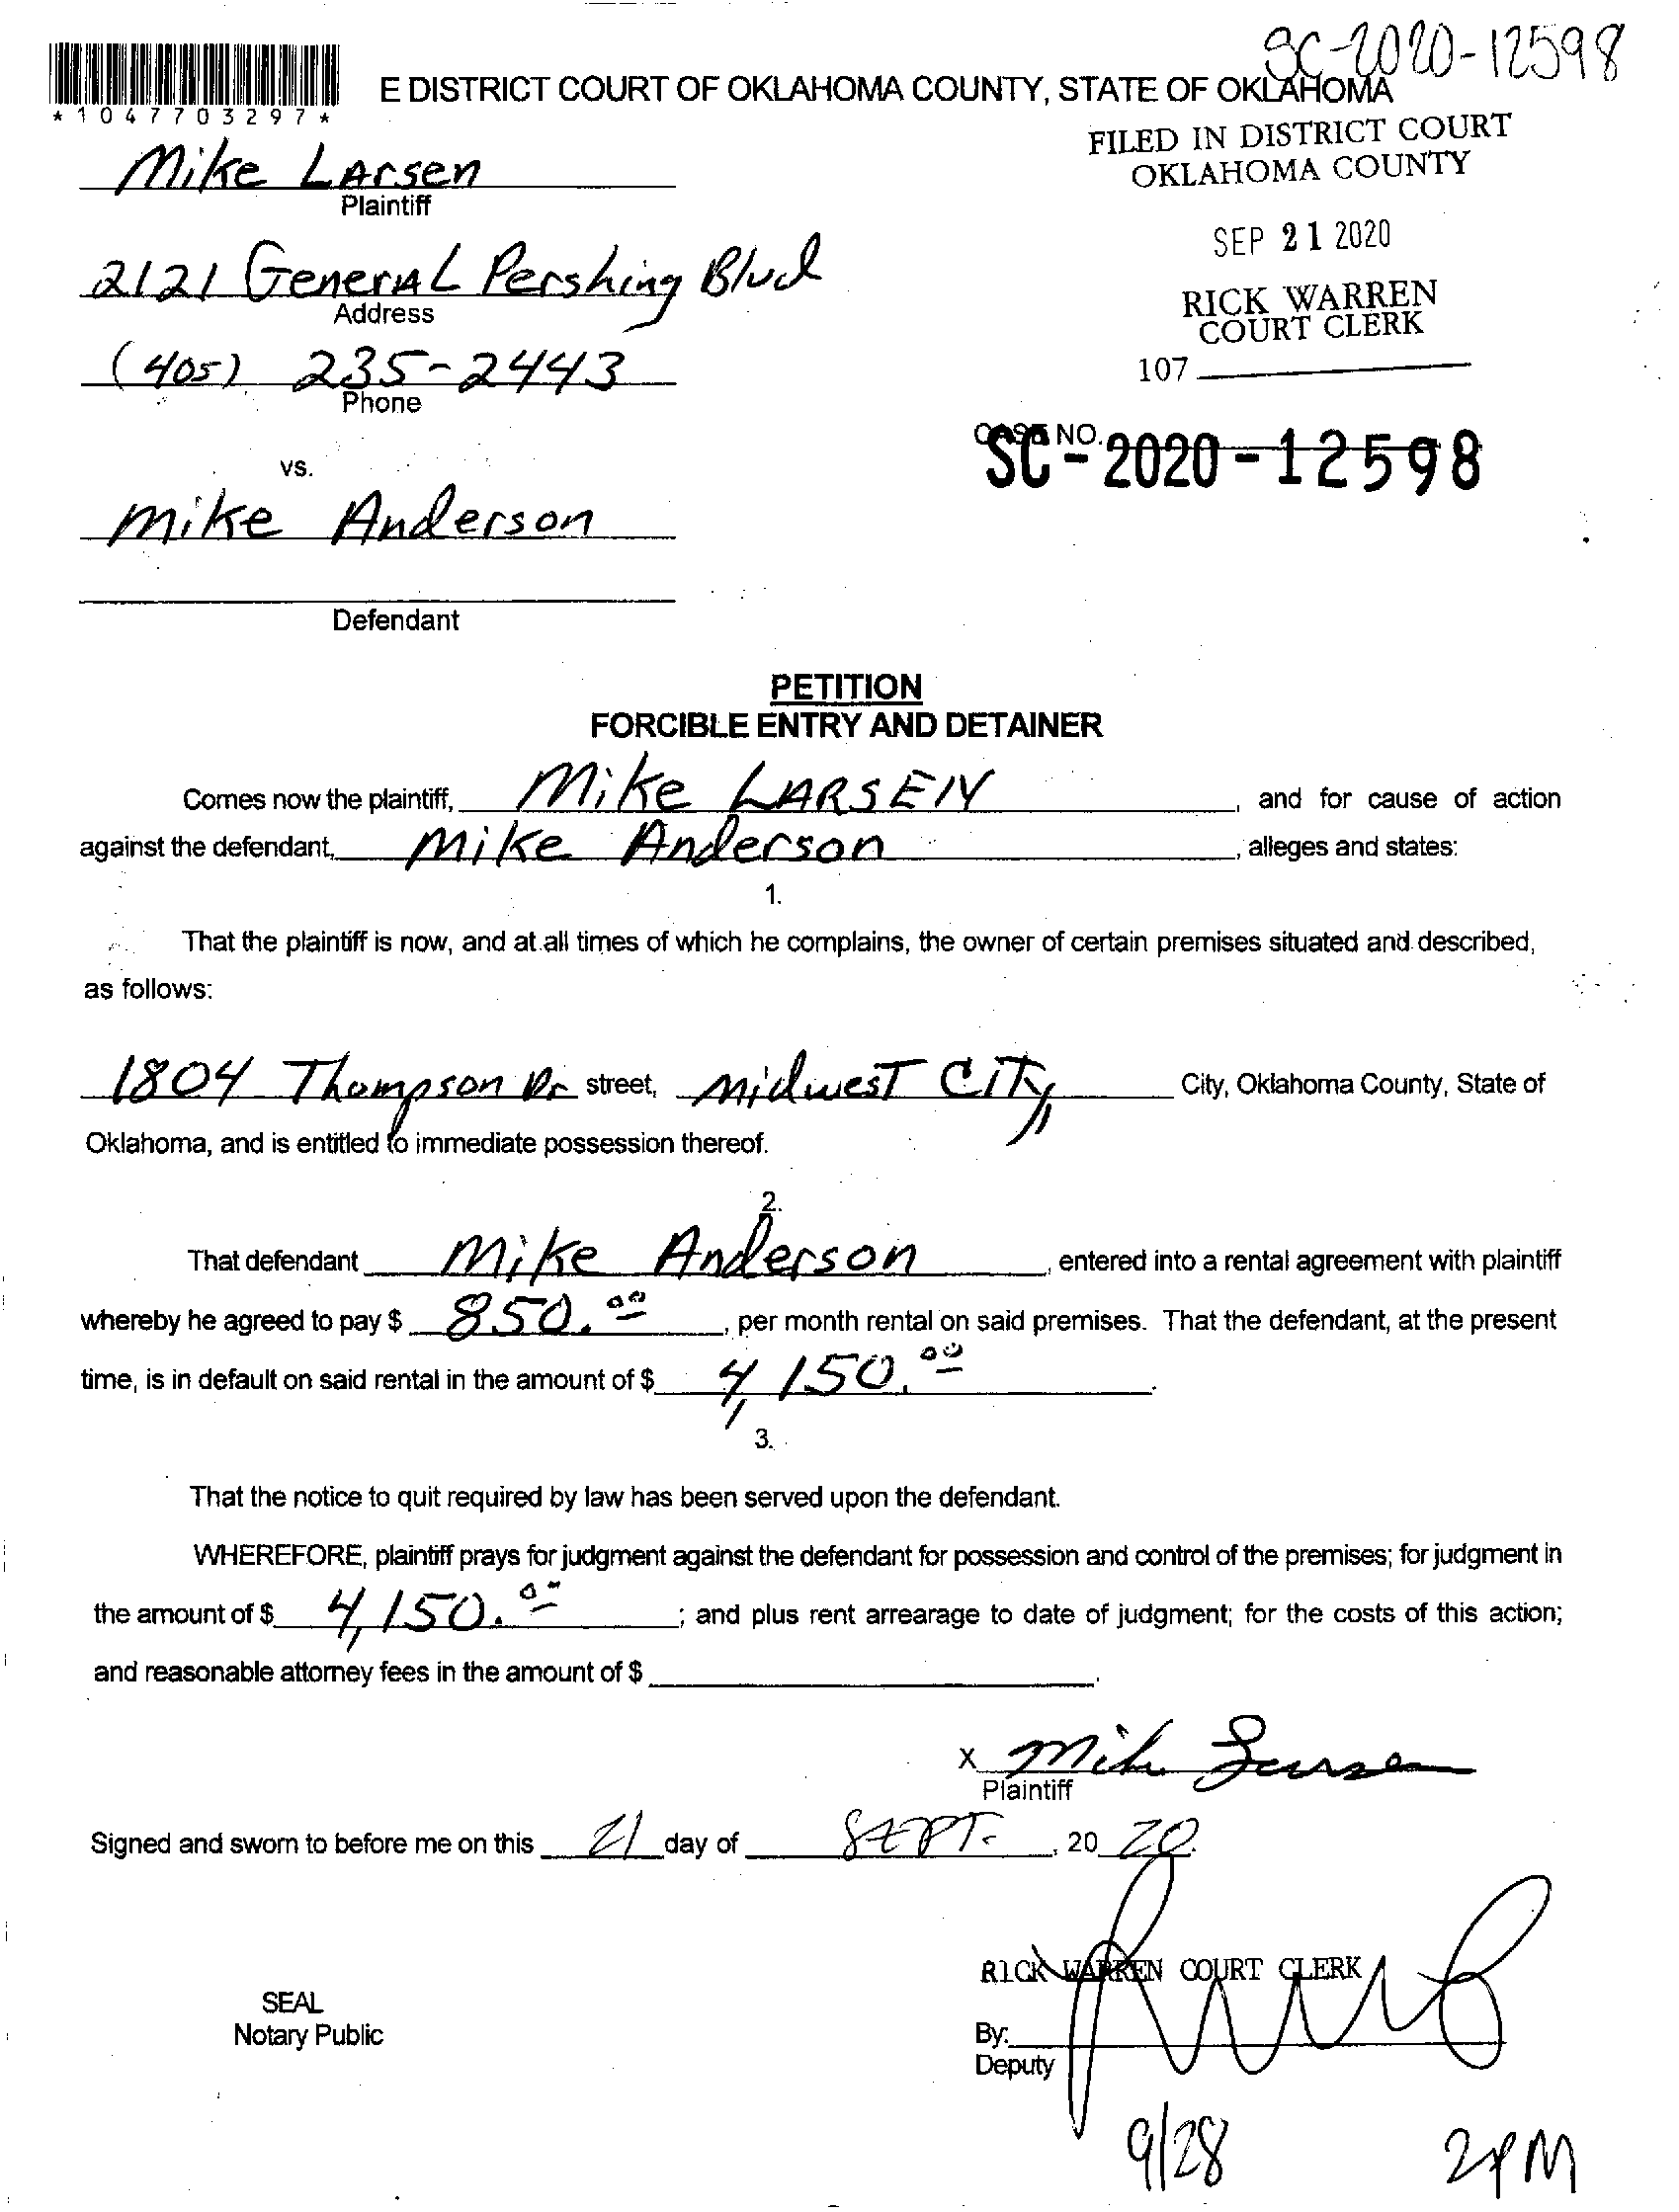 SC-2020-12598
*1047703297*
E DISTRICT COURT OF OKLAHOMA COUNTY, STATE OF OKLAHOMA
FILED IN DISTRICT COURT
OKLAHOMA COUNTY
Mike Larsen
Plaintiff
SEP 21 2020
2121 General Pershing Blvd
Address
RICK WARREN
COURT CLERK
107
(405) 235-2443
Phone
CASE NO.
SC-2020-12598
vs.
Mike Anderson
Defendant
PETITION
FORCIBLE ENTRY AND DETAINER
Comes now the plaintiff, Mike LARSEN, and for cause of action
against the defendant, Mike Anderson, alleges and states:
1.
That the plaintiff is now, and at all times of which he complains, the owner of certain premises situated and described,
as follows:
1804 Thompson Dr street, Midwest City, City, Oklahoma County, State of
Oklahoma, and is entitled to immediate possession thereof.
2.
That defendant Mike Anderson, entered into a rental agreement with plaintiff
whereby he agreed to pay $ 850.00, per month rental on said premises. That the defendant, at the present
time, is in default on said rental in the amount of $ 4,150.00.
3.
That the notice to quit required by law has been served upon the defendant.
WHEREFORE, plaintiff prays for judgment against the defendant for possession and control of the premises; for judgment in
the amount of $ 4,150.00; and plus rent arrearage to date of judgment; for the costs of this action;
and reasonable attorney fees in the amount of $ .
X Mike Larsen
Plaintiff
Signed and sworn to before me on this 21 day of SEPT., 20 20.
RICK WARREN COURT CLERK
SEAL
Notary Public
By:
Deputy
9/28 2PM